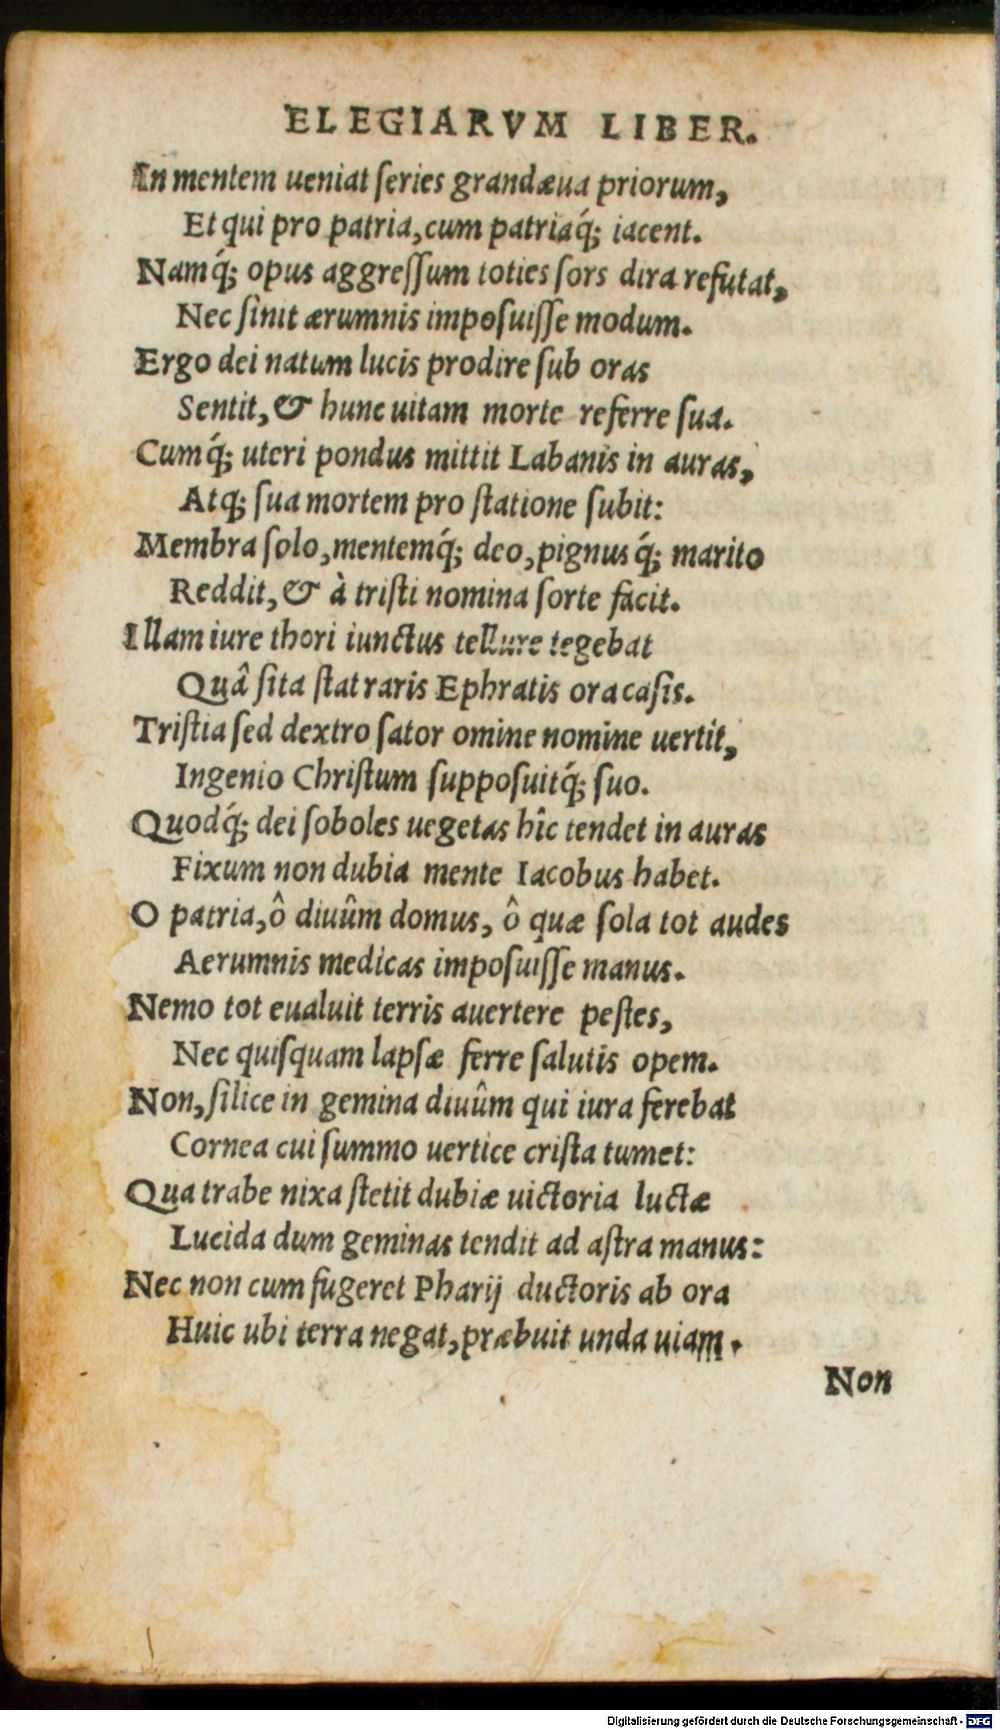 ELEGIARVM LIBER.
In mentem ueniat ſeries grandæua priorum,
Et qui pro patria, cum patriaq́; iacent.
Namq́; opus aggreſſum toties ſors dira refutat,
Nec ſinit ærumnis impoſuiſſe modum.
Ergo dei natum lucis prodire ſub oras
Sentit, & hunc uitam morte referre ſua.
Cumq́; uteri pondus mittit Labanis in auras,
Atq; ſua mortem pro ſtatione ſubit:
Membra ſolo, mentemq́; deo, pignusq́; marito
Reddit, & à triſti nomina ſorte facit.
Illam iure thori iunctus tellure tegebat
Quâ ſita ſtat raris Ephratis ora caſis.
Triſtia ſed dextro ſator omine nomine uertit,
Ingenio Chriſtum ſuppoſuitq́; ſuo.
Quodq́; dei ſoboles uegetas hîc tendet in auras
Fixum non dubia mente Iacobus habet.
O patria, ô diuûm domus, ô quæ ſola tot audes
Aerumnis medicas impoſuiſſe manus.
Nemo tot eualuit terris auertere peſtes,
Nec quiſquam lapſæ ferre ſalutis opem.
Non, ſilice in gemina diuûm qui iura ferebat
Cornea cui ſummo uertice criſta tumet:
Qua trabe nixa ſtetit dubiæ uictoria luctæ
Lucida dum geminas tendit ad aſtra manus:
Nec non cum fugeret Pharij ductoris ab ora
Huic ubi terra negat, præbuit unda uiam.
Non
Digitalisierung gefördert durch die Deutsche Forschungsgemeinschaft - DFG